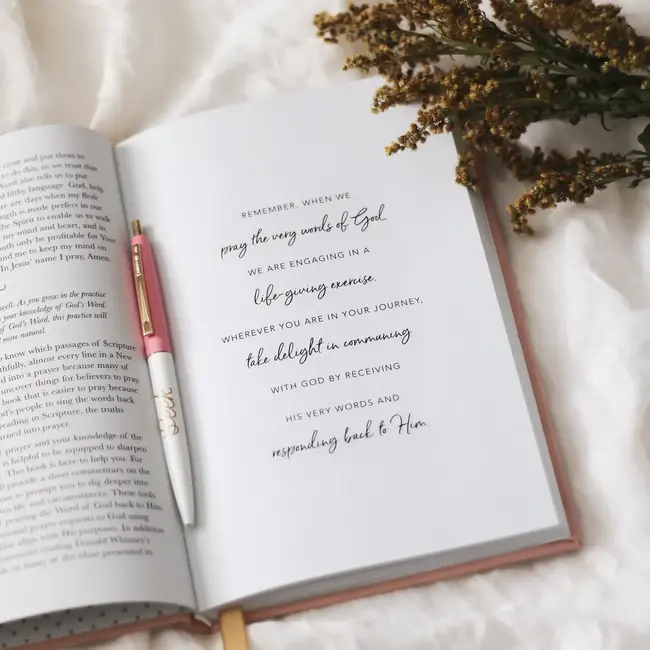 to do this, so we trust that
Word also tells us to put
filthy language. God, help
are days when my flesh
is made perfect in our
the Spirit to enable us to walk
my mind and heart, and in
only be profitable for Your
me to keep my mind on
In Jesus' name I pray, Amen.
well. As you grow in the practice
your knowledge of God's Word.
of God's Word, this practice will
more natural.
know which passages of Scripture
faithfully, almost every line in a New
into a prayer because many of
uncover things for believers to pray.
book that is easier to pray because
God's people to sing the words back
reading in Scripture, the truths
turned into prayer.
prayer and your knowledge of the
is helpful to be equipped to sharpen
This book is here to help you. For
provide a short commentary on the
to prompt you to dig deeper into
life and circumstances. These tools
praying the Word of God back to Him
prayer requests to God using
align with His purposes. In addition
reading Donald Whitney's
REMEMBER, WHEN WE
pray the very words of God,
WE ARE ENGAGING IN A
life-giving exercise.
WHEREVER YOU ARE IN YOUR JOURNEY,
take delight in communing
WITH GOD BY RECEIVING
HIS VERY WORDS AND
responding back to Him.